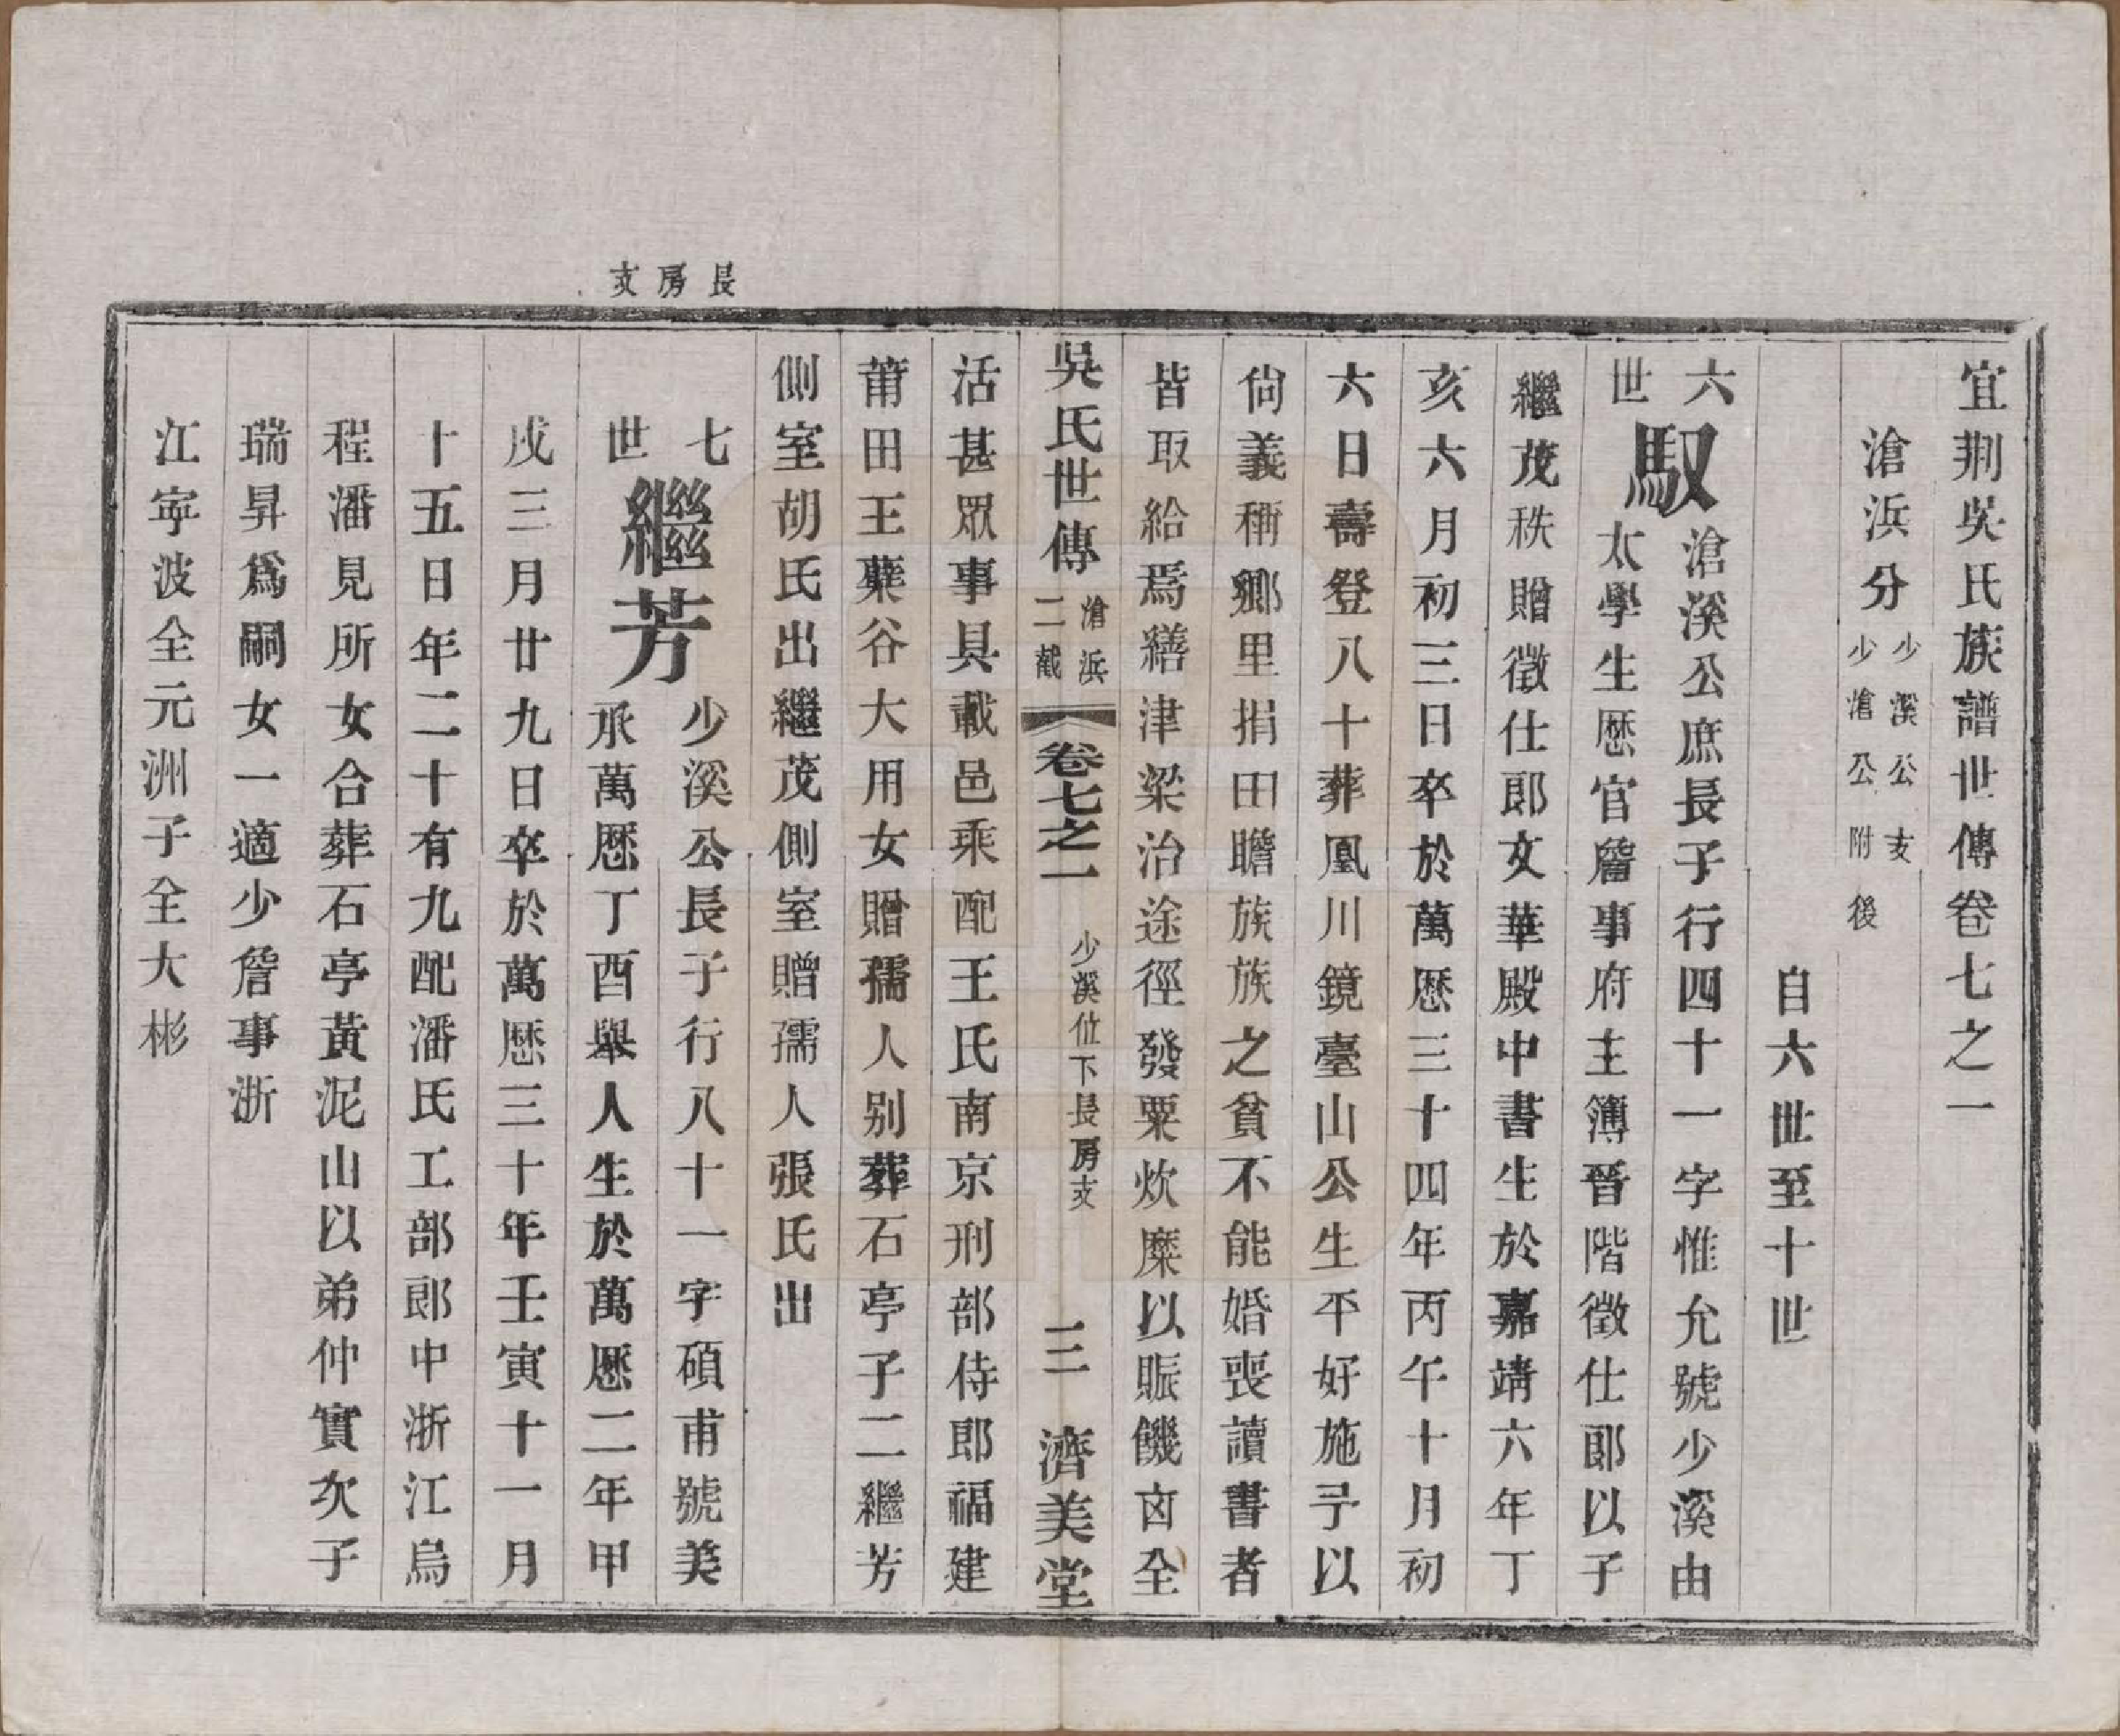 宜荆吳氏族譜世傳卷七之一
滄浜分 少溪公支 少滄公附後
自六世至十世
六世 馭 滄溪公庶長子行四十一字惟允號少溪由
太學生歷官詹事府主簿晉階徵仕郎以子
繼茂秩贈徵仕郎文華殿中書生於嘉靖六年丁
亥六月初三日卒於萬歷三十四年丙午十月初
六日壽登八十葬鳳川鏡臺山公生平好施予以
尙義稱鄉里捐田贍族族之貧不能婚喪讀書者
皆取給焉繕津梁治途徑發粟炊糜以賑饑囪全
吳氏世傳 滄浜二截 卷七之一 少溪位下長房支 三 濟美堂
活甚眾事具載邑乘配王氏南京刑部侍郎福建
莆田王蘗谷大用女贈孺人别葬石亭子二繼芳
側室胡氏出繼茂側室贈孺人張氏出
長房支
七世 繼芳 少溪公長子行八十一字碩甫號美
承萬歷丁酉舉人生於萬歷二年甲
戌三月廿九日卒於萬歷三十年壬寅十一月
十五日年二十有九配潘氏工部郎中浙江烏
程潘見所女合葬石亭黃泥山以弟仲實次子
瑞昇爲嗣女一適少詹事浙
江寧波全元洲子全大彬